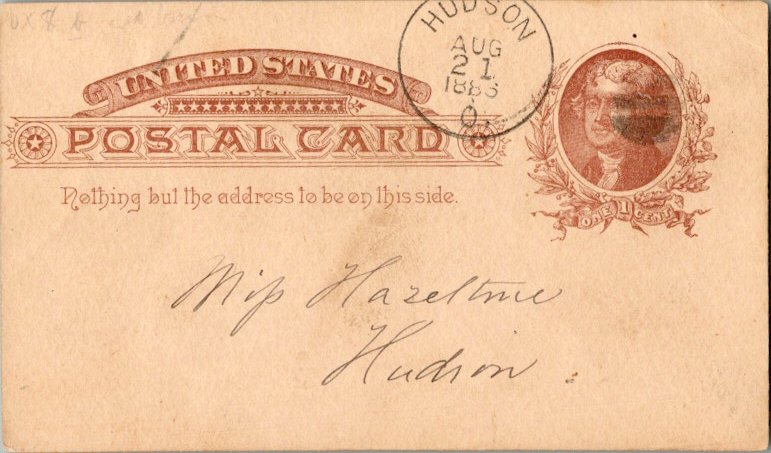 HUDSON
AUG
21
1886
O.
UNITED STATES
POSTAL CARD
Nothing but the address to be on this side.
ONE 1 CENT
Miss Hazeltine
Hudson